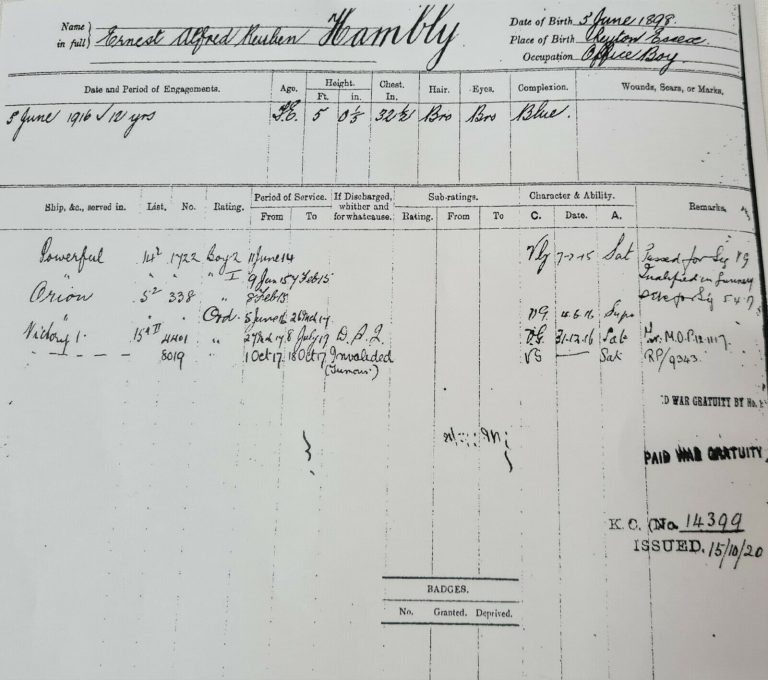 Name in full} Ernest Alfred Reuben Hambly
Date of Birth 5 June 1898.
Place of Birth Leyton Essex.
Occupation Office Boy.
Date and Period of Engagements. Age. Height. Ft. in. Chest. In. Hair. Eyes. Complexion. Wounds, Scars, or Marks.
5 June 1916 12 yrs 5 32½ Bro Bro Blue.
Ship, &c., served in. List. No. Rating. Period of Service. From To If Discharged, whither and for what cause. Sub-ratings. Rating. From To Character & Ability. C. Date. A. Remarks.
Powerful 14² 1722 Boy 2 11 June 14 VG Sat Passed for Sig VG
" " " " I 9 Jan 15 7 Feb 15 Qualified in
Orion 5² 338 " 8 Feb 15 for Sig
" Ord. 5 June 16 VG Supr
Victory I. 15ᴬ II 4401 " 8 July 17 VG 31-12-16 Sat M.O.P.
— " — 8019 1 Oct 17 18 Oct 17 Invalided VG — Sat RP/9343.
D WAR GRATUITY BY No.
PAID WAR GRATUITY
K.C. (No 14399
ISSUED. 15/10/20
BADGES.
No. Granted. Deprived.